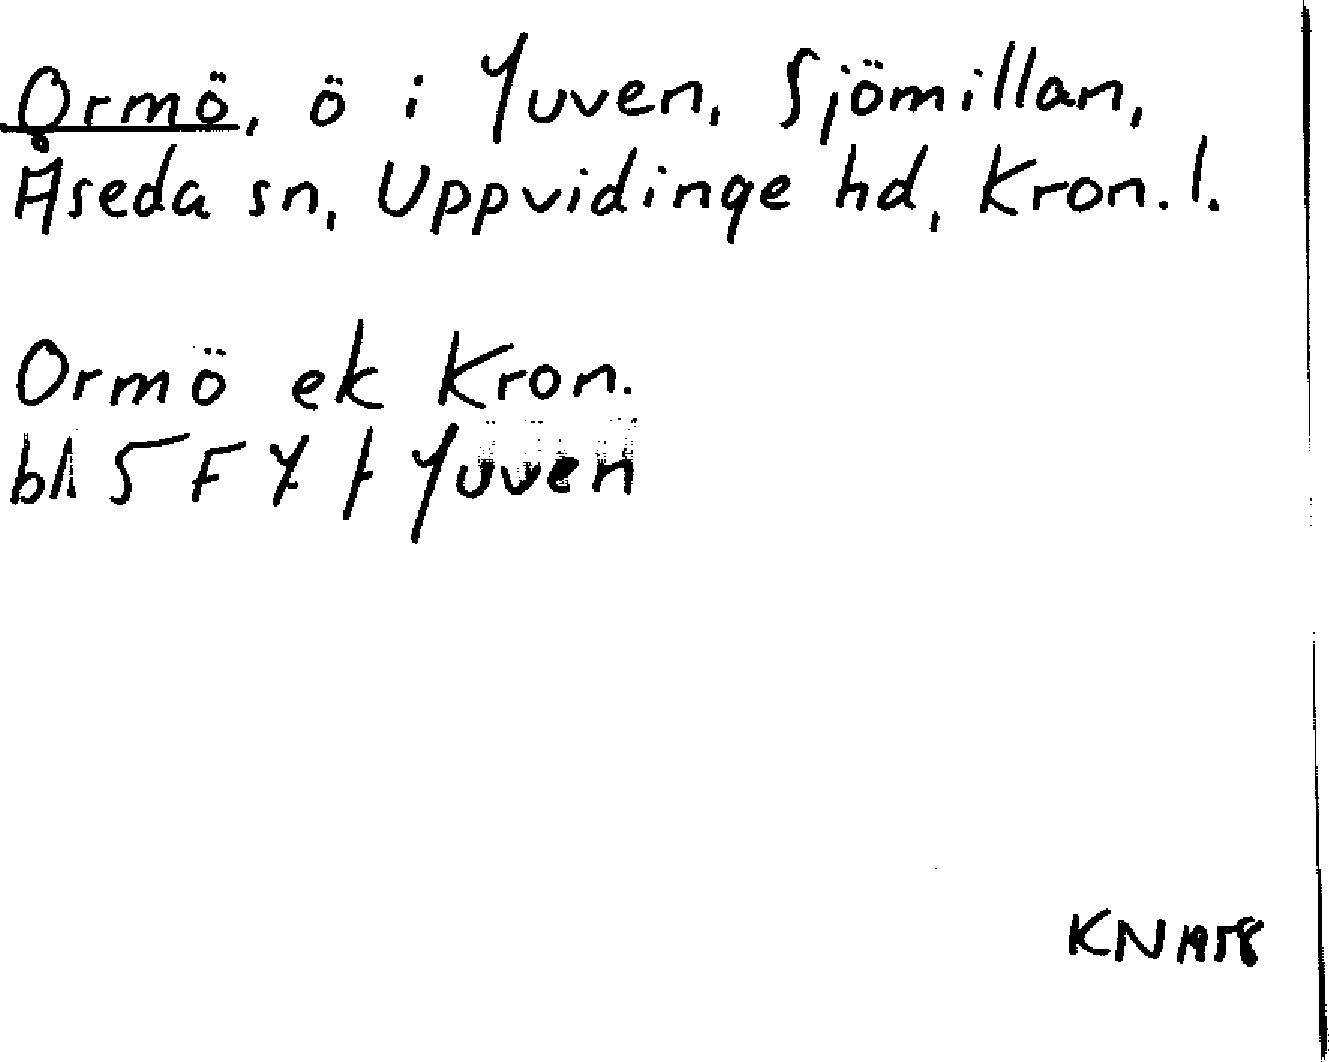 Ormö, ö i Yuven, Sjömillan,
Åseda sn, Uppvidinge hd, Kron. l.
Ormö ek Kron.
bl 5 F Yuven
KN 1958